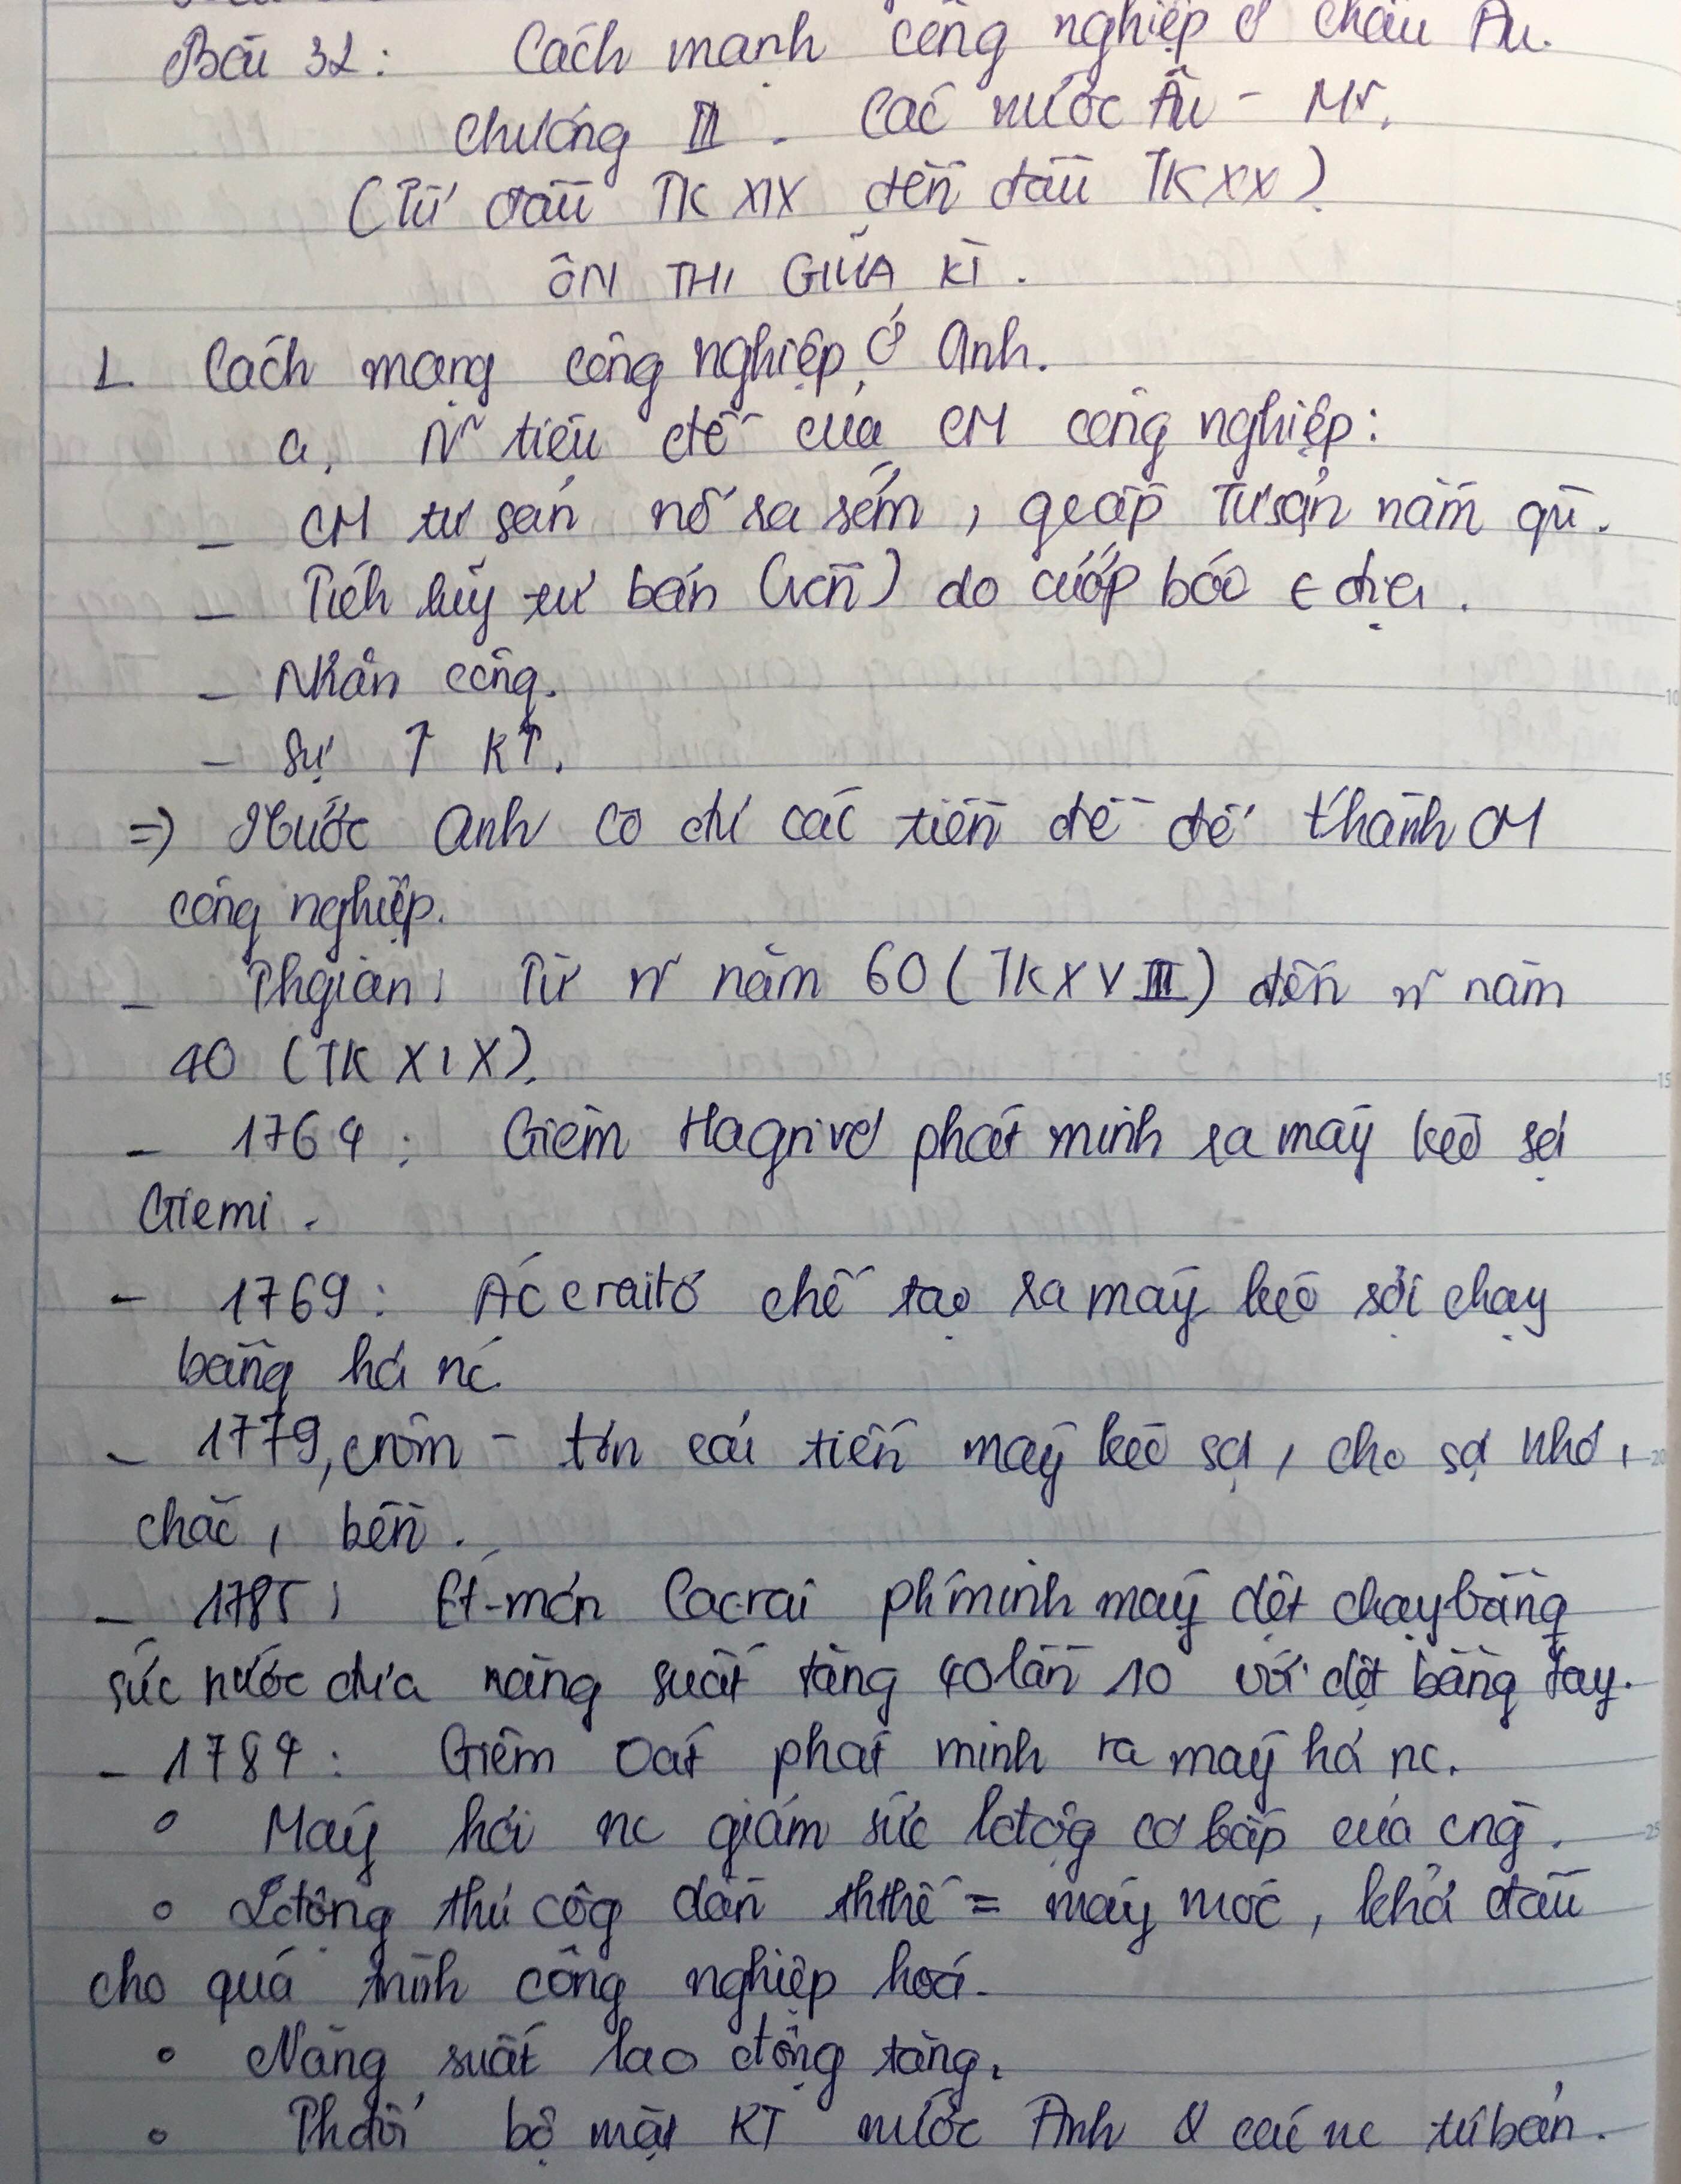 Bài 32: Cách mạnh công nghiệp ở châu Âu.
chương III. Các nước Âu - Mr.
(Từ đầu TK XIX đến đầu TK XX)
ÔN THI GIỮA KÌ.
1. Cách mạng công nghiệp ở Anh.
a. Nr tiền đề của CM công nghiệp:
- CM tư sản nổ ra sớm, gcấp Tư sản nắm qù.
- Tích lũy tư bản (vốn) do cướp bóc t địa.
- Nhân công.
- Sự ↑ KT.
=) Nước Anh có đủ các tiền đề để thành CM
công nghiệp.
- Thgian: Từ nr năm 60 (TK XVIII) đến nr năm
40 (TK XIX).
- 1764: Giêm Hagrivơ phát minh ra máy kéo sợi
Giemi.
- 1769: Ác craitơ chế tạo ra máy kéo sợi chạy
bằng hơi nc.
- 1779, crôm - tơn cải tiến máy kéo sợi, cho sợi nhỏ,
chắc, bền.
- 1785: Ét-mơn Cacrai ph minh máy dệt chạy bằng
sức nước đưa năng suất tăng 40 lần so với dệt bằng tay.
- 1784: Giêm Oát phát minh ra máy hơi nc.
• Máy hơi nc giảm sức lđộg cơ bắp của cng.
• Lđộng thủ côg dần ththế = máy móc, khở đầu
cho quá trình công nghiệp hoá.
• Năng suất lao động tăng.
• Thđổi bộ mặt KT nước Anh & các nc tư bản.